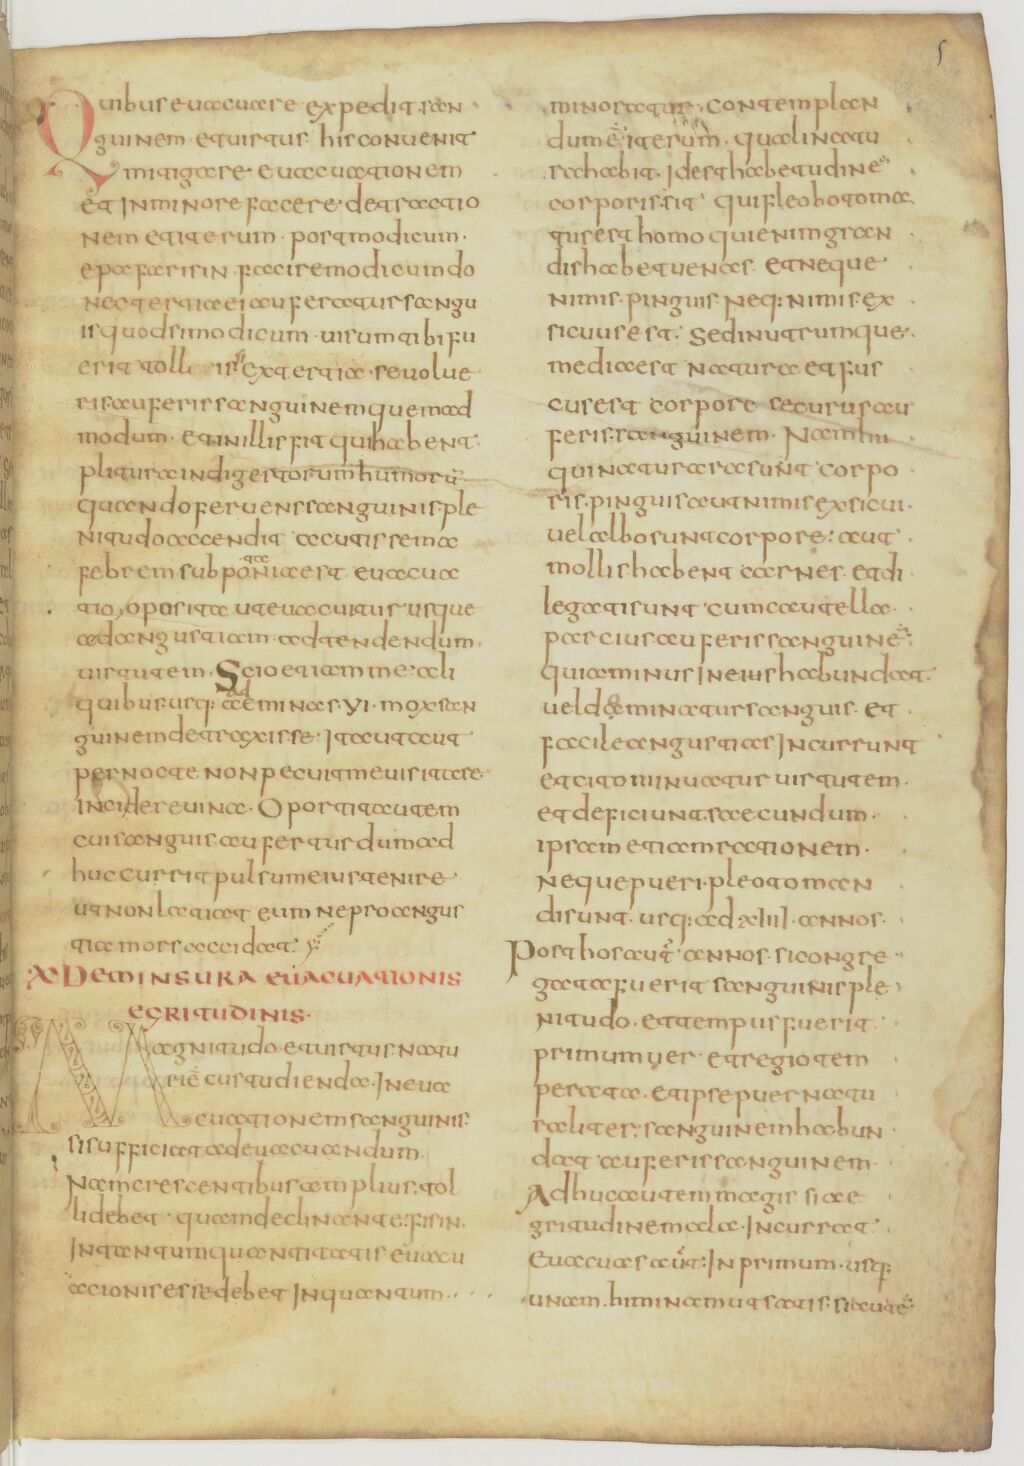 5
Quibus euacuare expedit. san
guinem et uirtus his conuenit
mitigare euacuationem
et In minore facere detractio
nem et iterum. post modicum.
epafarisin. facire modicum do
nec tertia ei auferatur sangu
is quod si modicum. uisum tibi fu
erit tolli ex tertia. reuolue
ris. auferis sanguinem quemad
modum. et in illis fit qui habent.
plitura indigestorum humorū.
quando feruens sanguinis ple
nitudo accendit acutissema
febrem subponia est. euacua
tio oposita ut euacuitur usque
ad angustiam. ad tendendum
uirtutem. Scio etiam me ali
quibus. usq: ad eminas. VI. mox san
guinem detraxisse. Ita ut aut
per nocte non pecuit meuisitare
Incidere uina. Oportit autem
cui sanguis aufertur dum ad
huc currit pulsum eius tenire
ut non lateat eum ne pro angus
tia mors accidat.
DE MINSURA EUACUATIONIS
EGRITUDINIS.
Magnitudo et uirtus natu
rie custudienda. In eua
euationem sanguinis.
si sufficiat ad euacuandum
Nam crescentibus amplius. tol
li debet quam declinante. fisin.
In tantum quantitatis euacu
accionis esse debet In quantum..
minoratur. contemplan
dum ē iterum. qualin atu
ra habit. Id est habetudinē
corporis. sit qui fleobotoma
tur est homo qui enim gran
dis habet uenas. et neque
nimis. pinguis. neq: nimis. ex
sicuus est. Sed in utrumque.
media est natura et fus
cus est corpore securus au
feris. sanguinem. Nam hii
qui naturara sunt corpo
ris. pinguis aut nimis exsicui.
uel albo sunt corpore. aut
mollis habent carnes. et di
legati sunt cum cautella.
parcius auferis sanguinē
quia minus In eius habundat.
ueld& minatur sanguis. et
facile angustias Incurrunt
et cito minuatur uirtutem.
et deficiunt. saecundum.
ipsam etiam rationem.
Neque pueri. pleotoman
di sunt. usq: ad. xiiii. annos.
Post hos aūt annos. si congre
gata fuerit sanguinis ple
nitudo. et tempus fuerit
primum uer et regio tem
perata. et ipse puer natu
raliter. sanguinem habun
dat auferis sanguinem
Ad huc autem magis si ae
gritudinem ala. Incurrat
Euacuas aūt. In primum. usq:
unam. himinam ut satis. si autē